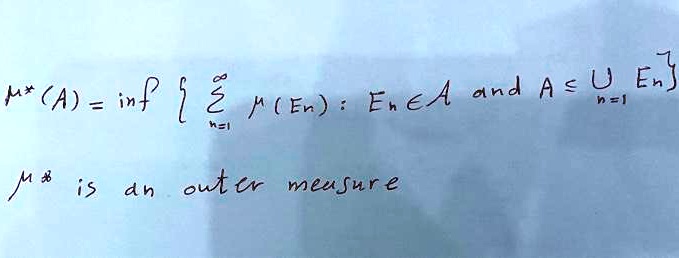 μ*(A) = inf { ∞∑n=1 μ(En) : En ∈ A and A ⊆ ∞⋃n=1 En}
μ* is an outer measure